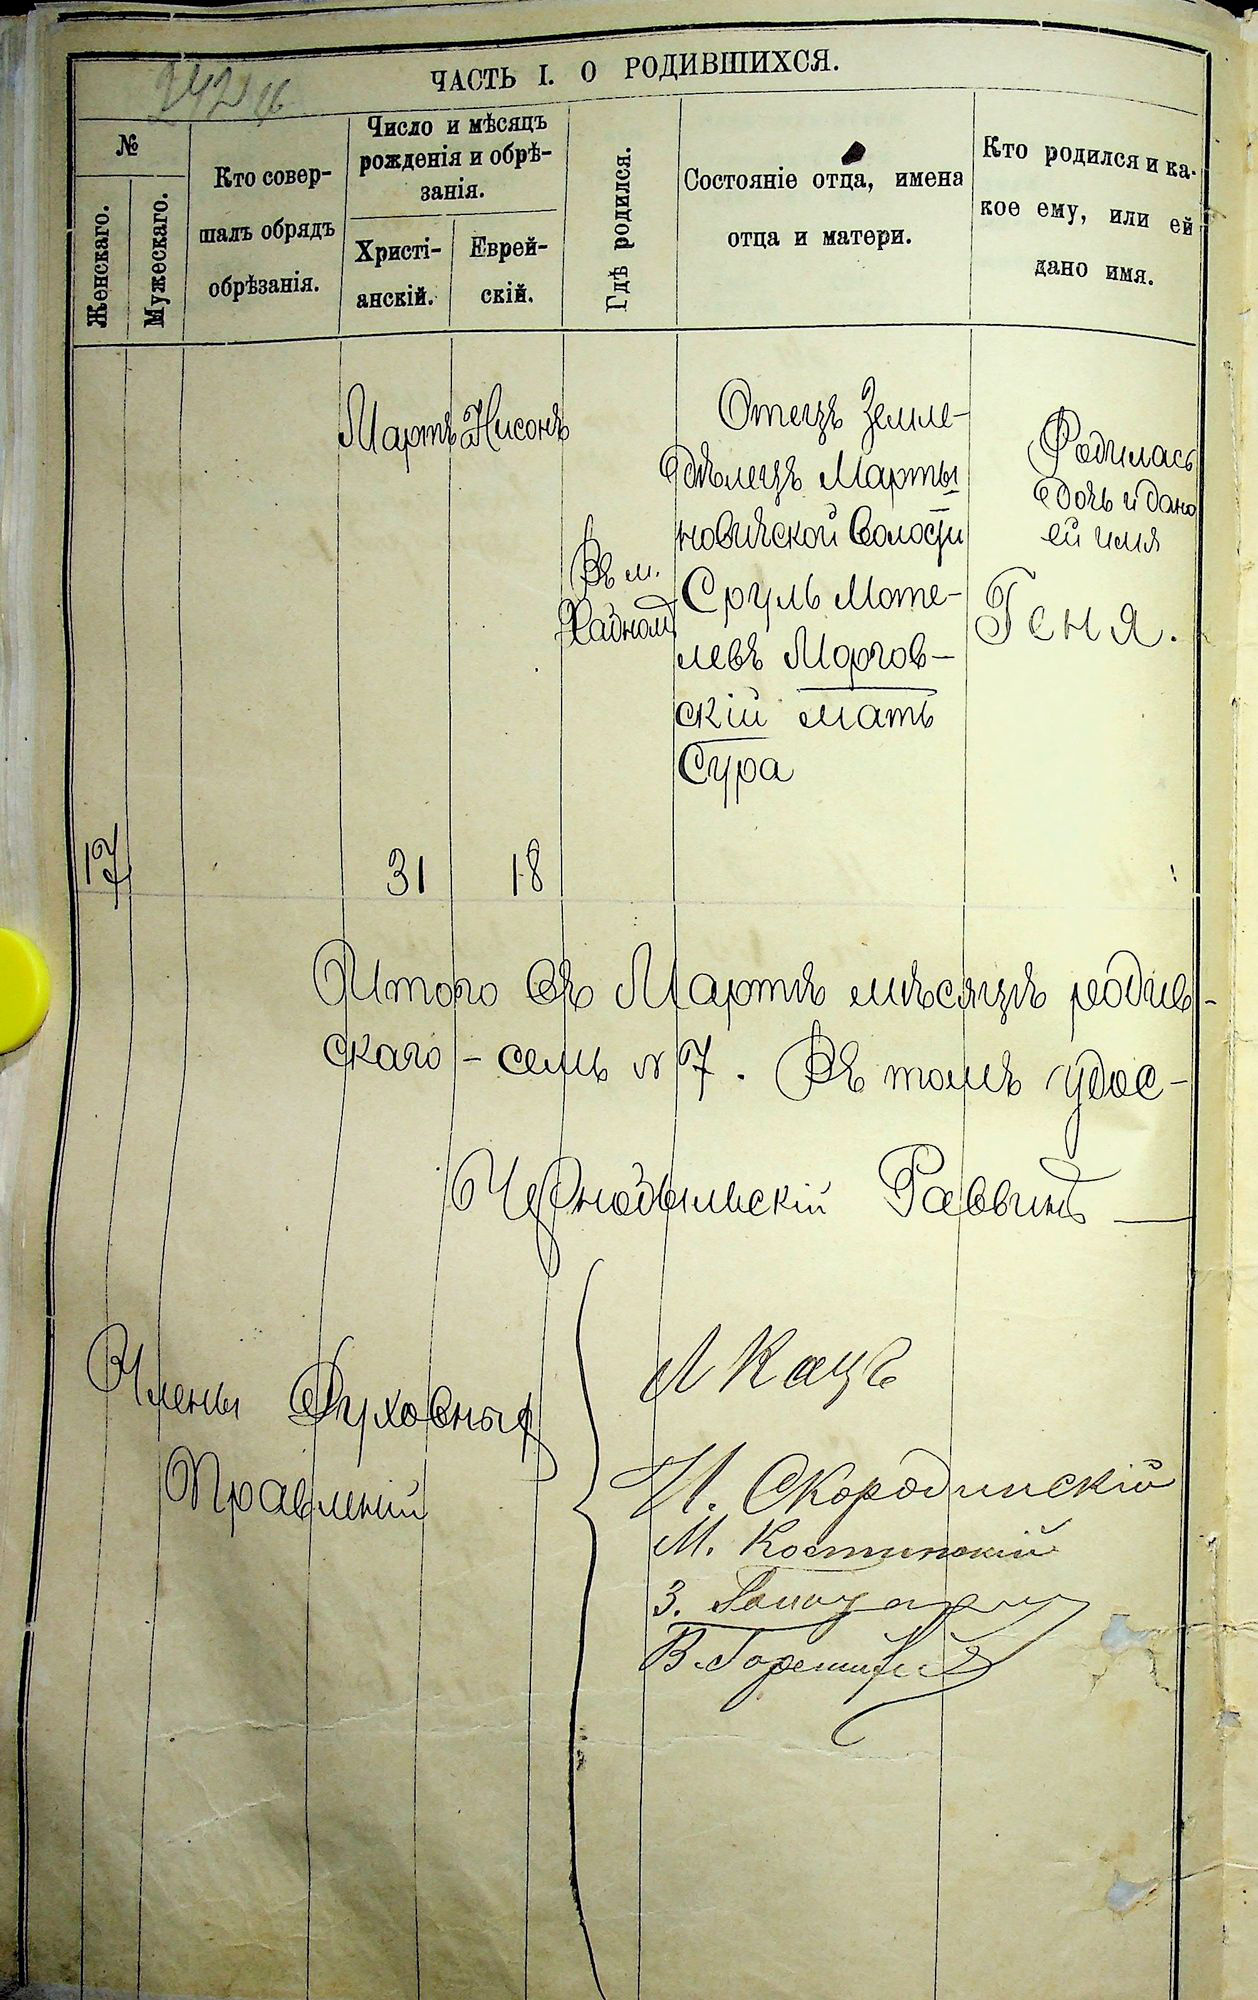 ЧАСТЬ I. О РОДИВШИХСЯ.
№
Женскаго.
Мужескаго.
Кто совер-
шалъ обрядъ
обрѣзанія.
Число и мѣсяцъ
рожденія и обрѣ-
занія.
Христі-
анскій.
Еврей-
скій.
Гдѣ родился.
Состояніе отца, имена
отца и матери.
Кто родился и ка-
кое ему, или ей
дано имя.
Мартъ
Нисонъ
Въ м.
Отецъ Земле-
дѣлецъ Марты
новичской Волости
Сруль Моте-
левъ Моргов-
скій мать
Сура
Родилась
дочь и дано
ей имя
Геня.
17
31
18
Итого въ Мартѣ мѣсяцѣ
скаго - семь № 7. Въ томъ удос-
Чернобыльскій Раввинъ
Члены Духовныхъ
Правленій
Л Кацъ
И. Скородинскій
М.
З.
В.